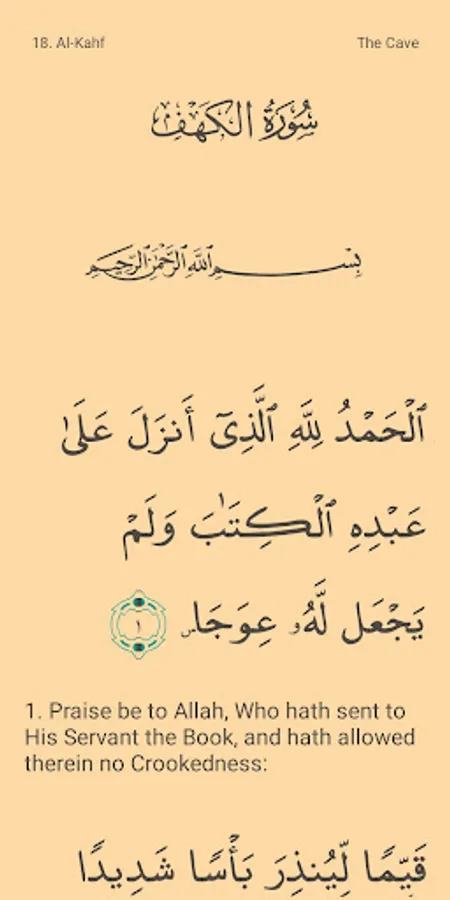 18. Al-Kahf The Cave
سُورَةُ الكَهْفِ
بِسْمِ اللَّهِ الرَّحْمَٰنِ الرَّحِيمِ
ٱلْحَمْدُ لِلَّهِ ٱلَّذِىٓ أَنزَلَ عَلَىٰ
عَبْدِهِ ٱلْكِتَـٰبَ وَلَمْ
يَجْعَل لَّهُۥ عِوَجَاۜ ١
1. Praise be to Allah, Who hath sent to
His Servant the Book, and hath allowed
therein no Crookedness:
قَيِّمًا لِّيُنذِرَ بَأْسًا شَدِيدًا